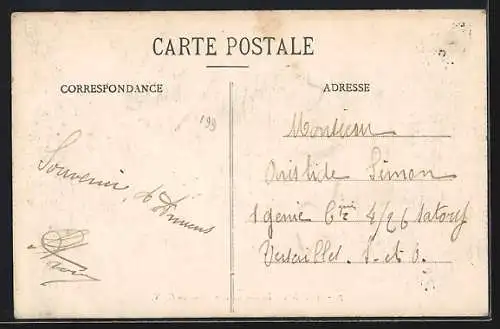 CARTE POSTALE
CORRESPONDANCE
ADRESSE
199
Monsieur
Aristide Simon
1 génie Cie 4/26 Satory
Versailles. S-et-O.
Souvenir